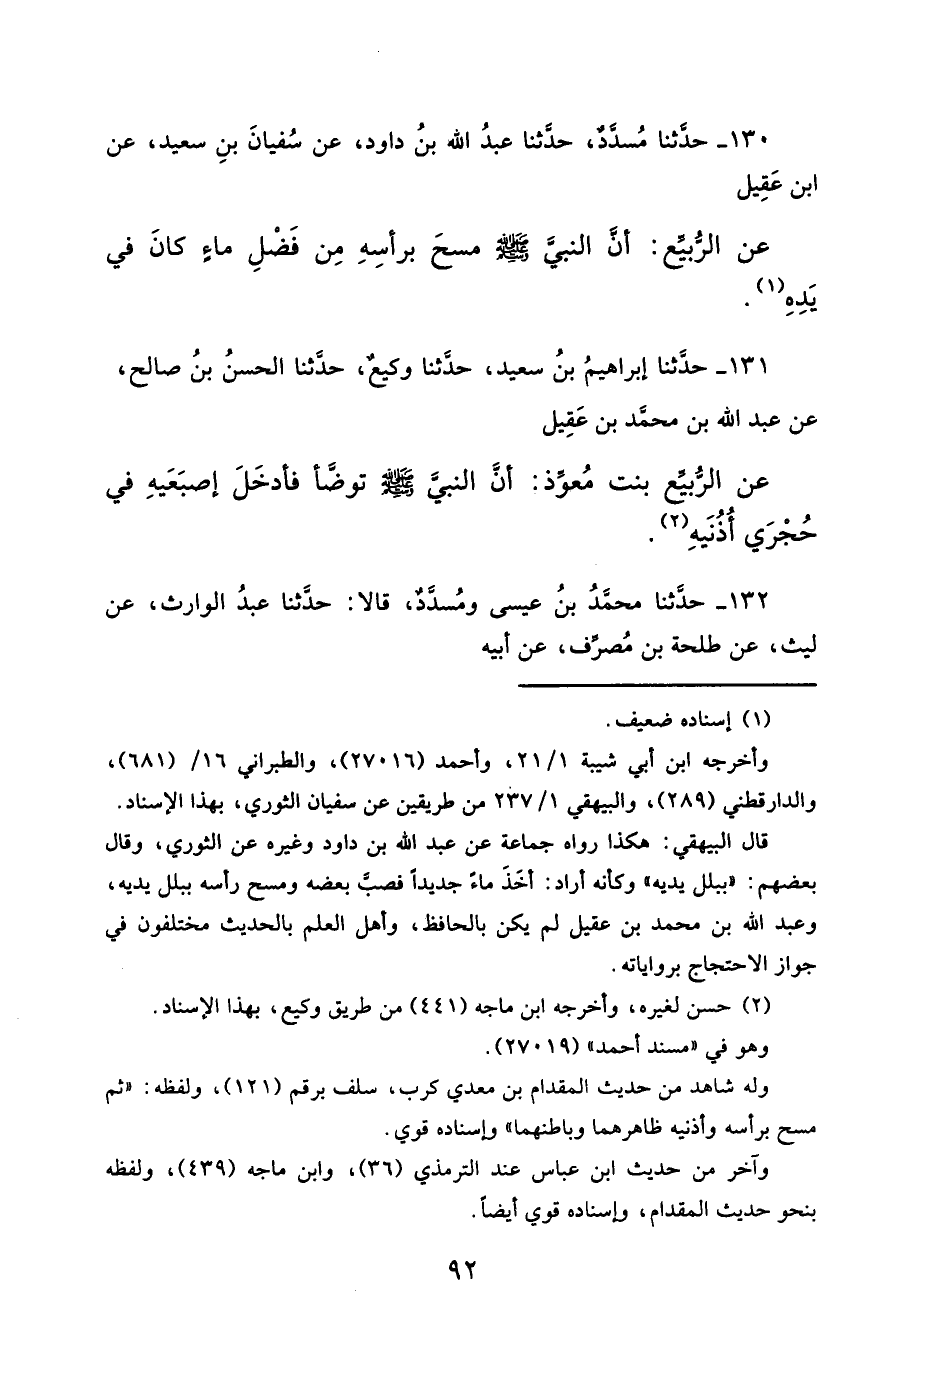 ١٣٠ـ حدَّثنا مُسدَّدٌ، حدَّثنا عبدُ الله بنُ داود، عن سُفيانَ بنِ سعيد، عن
ابن عَقِيل
عن الرُّبيِّع: أنَّ النبيَّ ﷺ مسحَ برأسِهِ مِن فَضْلِ ماءٍ كانَ في
يَدِهِ(١).
١٣١ـ حدَّثنا إبراهيمُ بنُ سعيد، حدَّثنا وكيعٌ، حدَّثنا الحسنُ بنُ صالح،
عن عبد الله بن محمَّد بن عَقِيل
عن الرُّبيِّع بنت مُعوِّذ: أنَّ النبيَّ ﷺ توضَّأ فأدخَلَ إصبَعَيهِ في
حُجْرَي أُذُنَيهِ(٢).
١٣٢ـ حدَّثنا محمَّدُ بنُ عيسى ومُسدَّدٌ، قالا: حدَّثنا عبدُ الوارث، عن
ليث، عن طلحة بن مُصرِّف، عن أبيه
(١) إسناده ضعيف.
وأخرجه ابن أبي شيبة ٢١/١، وأحمد (٢٧٠١٦)، والطبراني ١٦/ (٦٨١)،
والدارقطني (٢٨٩)، والبيهقي ٢٣٧/١ من طريقين عن سفيان الثوري، بهذا الإسناد.
قال البيهقي: هكذا رواه جماعة عن عبد الله بن داود وغيره عن الثوري، وقال
بعضهم: «ببلل يديه» وكأنه أراد: أخَذَ ماءً جديداً فصبَّ بعضه ومسح رأسه ببلل يديه،
وعبد الله بن محمد بن عقيل لم يكن بالحافظ، وأهل العلم بالحديث مختلفون في
جواز الاحتجاج برواياته.
(٢) حسن لغيره، وأخرجه ابن ماجه (٤٤١) من طريق وكيع، بهذا الإسناد.
وهو في «مسند أحمد» (٢٧٠١٩).
وله شاهد من حديث المقدام بن معدي كرب، سلف برقم (١٢١)، ولفظه: «ثم
مسح برأسه وأذنيه ظاهرهما وباطنهما» وإسناده قوي.
وآخر من حديث ابن عباس عند الترمذي (٣٦)، وابن ماجه (٤٣٩)، ولفظه
بنحو حديث المقدام، وإسناده قوي أيضاً.
٩٢